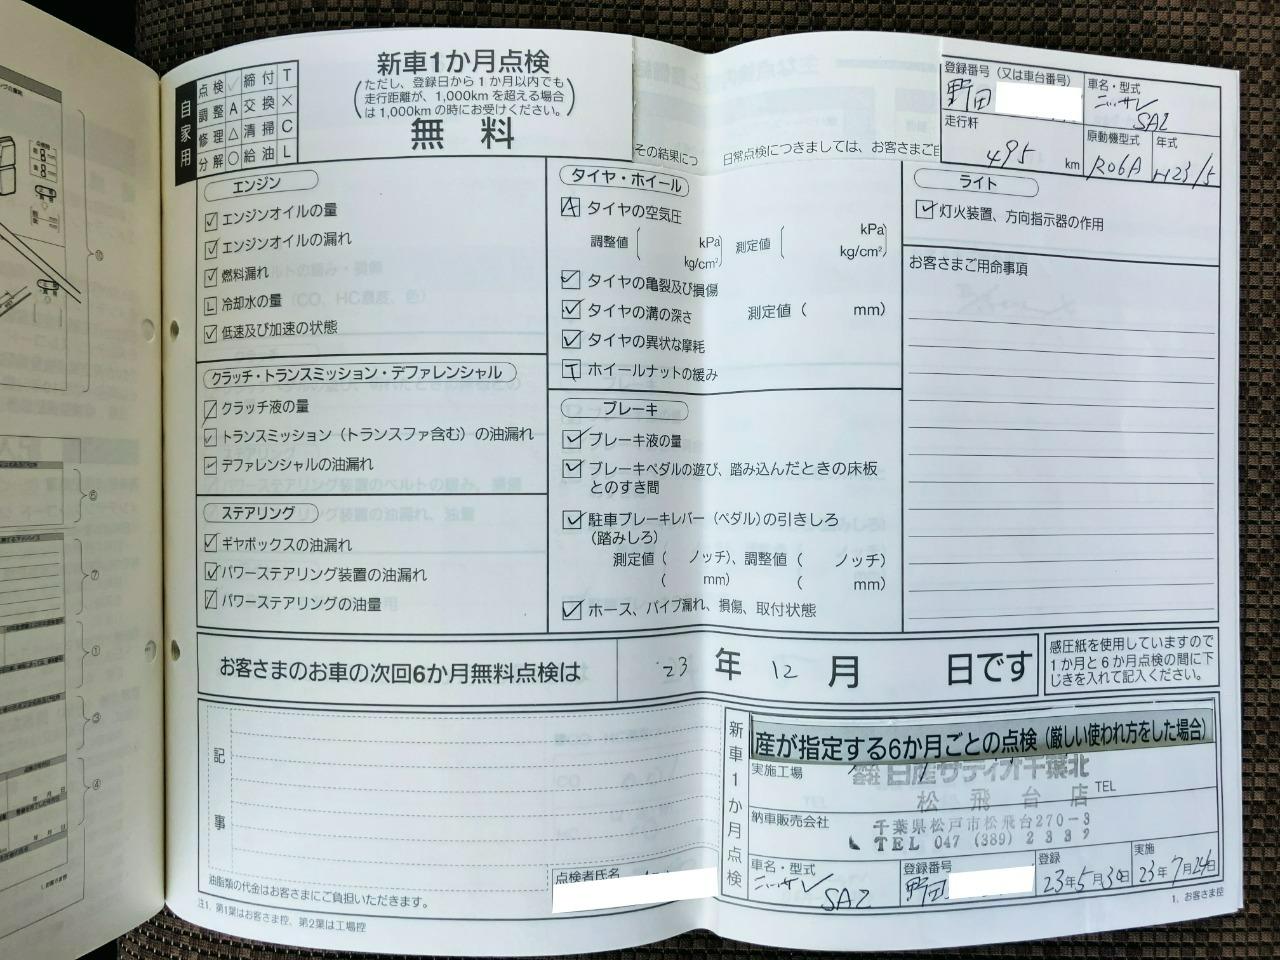 自家用
点検 ✓ 締付 T
調整 A 交換 ×
修理 △ 清掃 C
分解 ○ 給油 L
新車1か月点検
(ただし、登録日から1か月以内でも
走行距離が、1,000kmを超える場合
は1,000kmの時にお受けください。)
無料
その結果につ
日常点検につきましては、お客さまご自
登録番号(又は車台番号)
野田
車名・型式
ニッサン
SAZ
走行粁
495 km
原動機型式
R06A
年式
H23/5
エンジン
エンジンオイルの量
エンジンオイルの漏れ
燃料漏れ
L 冷却水の量
低速及び加速の状態
クラッチ・トランスミッション・デファレンシャル
クラッチ液の量
トランスミッション(トランスファ含む)の油漏れ
デファレンシャルの油漏れ
ステアリング
ギヤボックスの油漏れ
パワーステアリング装置の油漏れ
パワーステアリングの油量
タイヤ・ホイール
A タイヤの空気圧
調整値( kPa kg/cm²) 測定値( kPa kg/cm²)
タイヤの亀裂及び損傷
タイヤの溝の深さ 測定値( mm)
タイヤの異状な摩耗
T ホイールナットの緩み
ブレーキ
ブレーキ液の量
ブレーキペダルの遊び、踏み込んだときの床板
とのすき間
駐車ブレーキレバー(ペダル)の引きしろ
(踏みしろ)
測定値( ノッチ)、調整値( ノッチ)
( mm) ( mm)
ホース、パイプ漏れ、損傷、取付状態
ライト
灯火装置、方向指示器の作用
お客さまご用命事項
お客さまのお車の次回6か月無料点検は
'23 年 12 月 日です
感圧紙を使用していますので
1か月と6か月点検の間に下
じきを入れて記入ください。
記事
油脂類の代金はお客さまにご負担いただきます。
点検者氏名
新車1か月点検
産が指定する6か月ごとの点検(厳しい使われ方をした場合)
実施工場
日産サティオ千葉北
松飛台店
TEL
納車販売会社
千葉県松戸市松飛台270-3
TEL 047 (389) 2332
車名・型式
ニッサン
SAZ
登録番号
野田
登録
23年5月30日
実施
23年7月24日
注1. 第1葉はお客さま控、第2葉は工場控
1. お客さま控